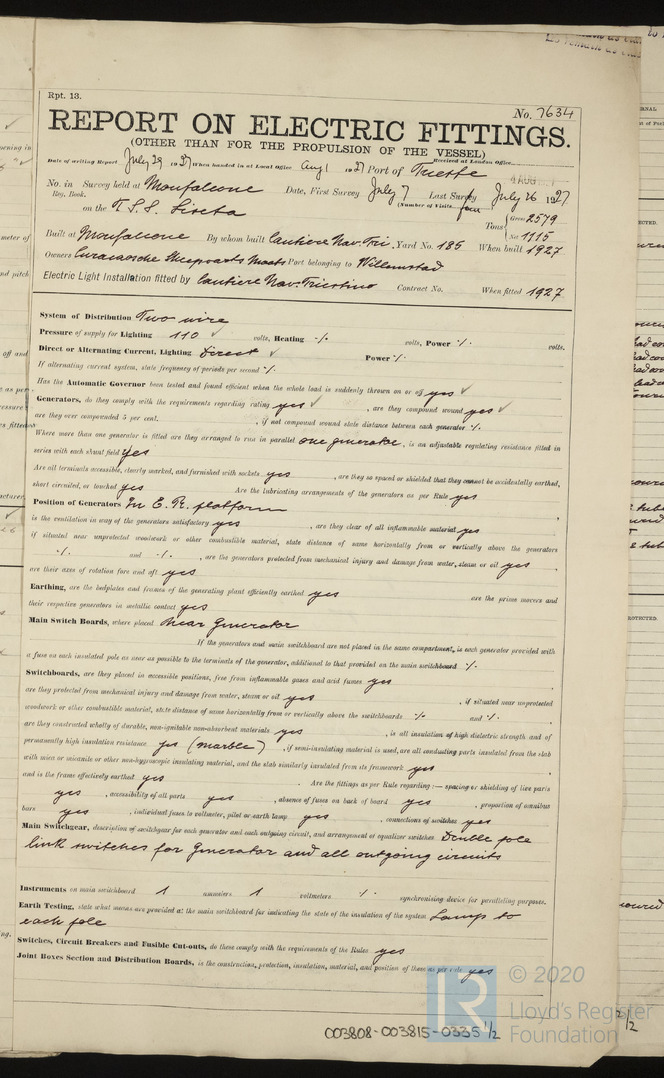 Rpt. 13.
No. 7634
REPORT ON ELECTRIC FITTINGS.
(OTHER THAN FOR THE PROPULSION OF THE VESSEL)
Date of writing Report July 29 1927 When handed in at Local Office Aug 1 1927 Port of Trieste Received at London Office
No. in Survey held at Monfalcone Date, First Survey July 7 Last Survey July 26 1927
Reg. Book. (Number of Visits four
on the T.S.S. Liseta Tons { Gross 2579
Net 1115
Built at Monfalcone By whom built Cantiere Nav. Tri. Yard No. 185 When built 1927
Owners Curacaosche Scheepvaarts Maats Port belonging to Willemstad
Electric Light Installation fitted by Cantiere Nav. Triestino Contract No. When fitted 1927
System of Distribution Two wire
Pressure of supply for Lighting 110 ✓ volts, Heating ·/· volts, Power ·/· volts.
Direct or Alternating Current, Lighting Direct ✓ Power ·/·
If alternating current system, state frequency of periods per second ·/·
Has the Automatic Governor been tested and found efficient when the whole load is suddenly thrown on or off yes ✓
Generators, do they comply with the requirements regarding rating yes ✓ , are they compound wound yes ✓
are they over compounded 5 per cent. , if not compound wound state distance between each generator ·/·
Where more than one generator is fitted are they arranged to run in parallel one generator , is an adjustable regulating resistance fitted in
series with each shunt field yes
Are all terminals accessible, clearly marked, and furnished with sockets yes , are they so spaced or shielded that they cannot be accidentally earthed,
short circuited, or touched yes Are the lubricating arrangements of the generators as per Rule yes
Position of Generators In E. R. platform
is the ventilation in way of the generators satisfactory yes , are they clear of all inflammable material yes
if situated near unprotected woodwork or other combustible material, state distance of same horizontally from or vertically above the generators
·/· and ·/· , are the generators protected from mechanical injury and damage from water, steam or oil yes
are their axes of rotation fore and aft yes
Earthing, are the bedplates and frames of the generating plant efficiently earthed yes are the prime movers and
their respective generators in metallic contact yes
Main Switch Boards, where placed Near generator
If the generators and main switchboard are not placed in the same compartment, is each generator provided with
a fuse on each insulated pole as near as possible to the terminals of the generator, additional to that provided on the main switchboard ·/·
Switchboards, are they placed in accessible positions, free from inflammable gases and acid fumes yes
are they protected from mechanical injury and damage from water, steam or oil yes , if situated near unprotected
woodwork or other combustible material, state distance of same horizontally from or vertically above the switchboards ·/· and ·/·
are they constructed wholly of durable, non-ignitable non-absorbent materials yes , is all insulation of high dielectric strength and of
permanently high insulation resistance yes (marble) , if semi-insulating material is used, are all conducting parts insulated from the slab
with mica or micanite or other non-hygroscopic insulating material, and the slab similarly insulated from its framework yes
and is the frame effectively earthed yes Are the fittings as per Rule regarding :— spacing or shielding of live parts
yes , accessibility of all parts yes , absence of fuses on back of board yes , proportion of omnibus
bars yes , individual fuses to voltmeter, pilot or earth lamp yes , connections of switches yes
Main Switchgear, description of switchgear for each generator and each outgoing circuit, and arrangement of equalizer switches Double pole
link switches for generator and all outgoing circuits
Instruments on main switchboard 1 ammeters 1 voltmeters ·/· synchronising device for paralleling purposes.
Earth Testing, state what means are provided at the main switchboard for indicating the state of the insulation of the system Lamp to
each pole
Switches, Circuit Breakers and Fusible Cut-outs, do these comply with the requirements of the Rules yes
Joint Boxes Section and Distribution Boards, is the construction, protection, insulation, material, and position of these as per rule yes
© 2020
Lloyd's Register
Foundation
003808-003815-0335 1/2